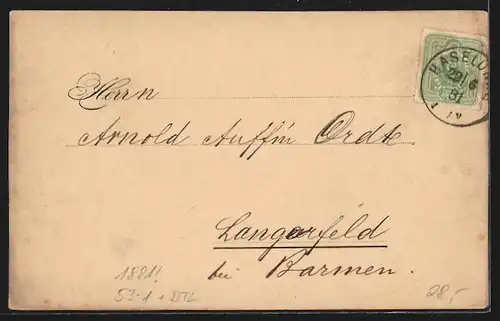 HASELÜNNE
29/6
81
1 N
Herrn
Arnold Auffm Ordt
Langerfeld
bei Barmen.
1881!
53-1 +
28,-